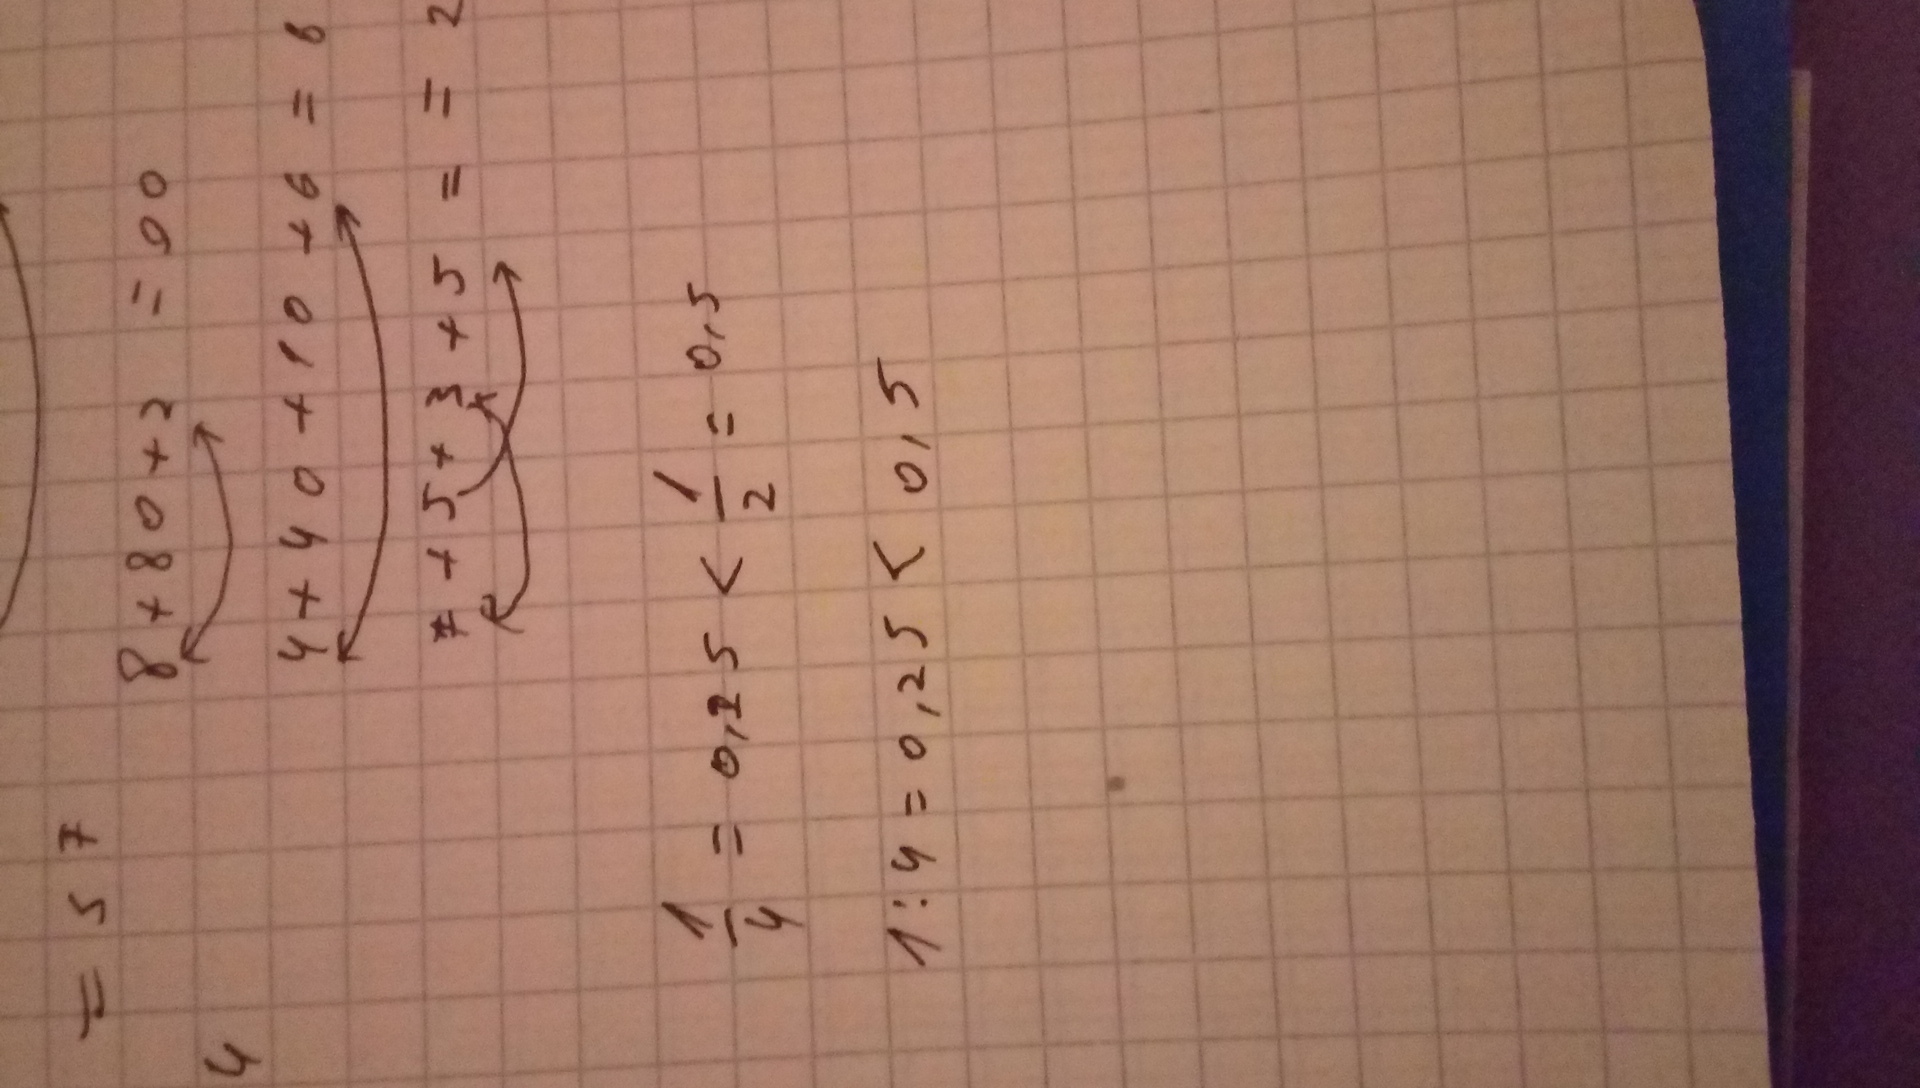 = 57
4
8+80+2 = 90
4+40+10+6 = 6
7+5+3+5 = = 2
1/4 = 0,25 < 1/2 = 0,5
1:4 = 0,25 < 0,5